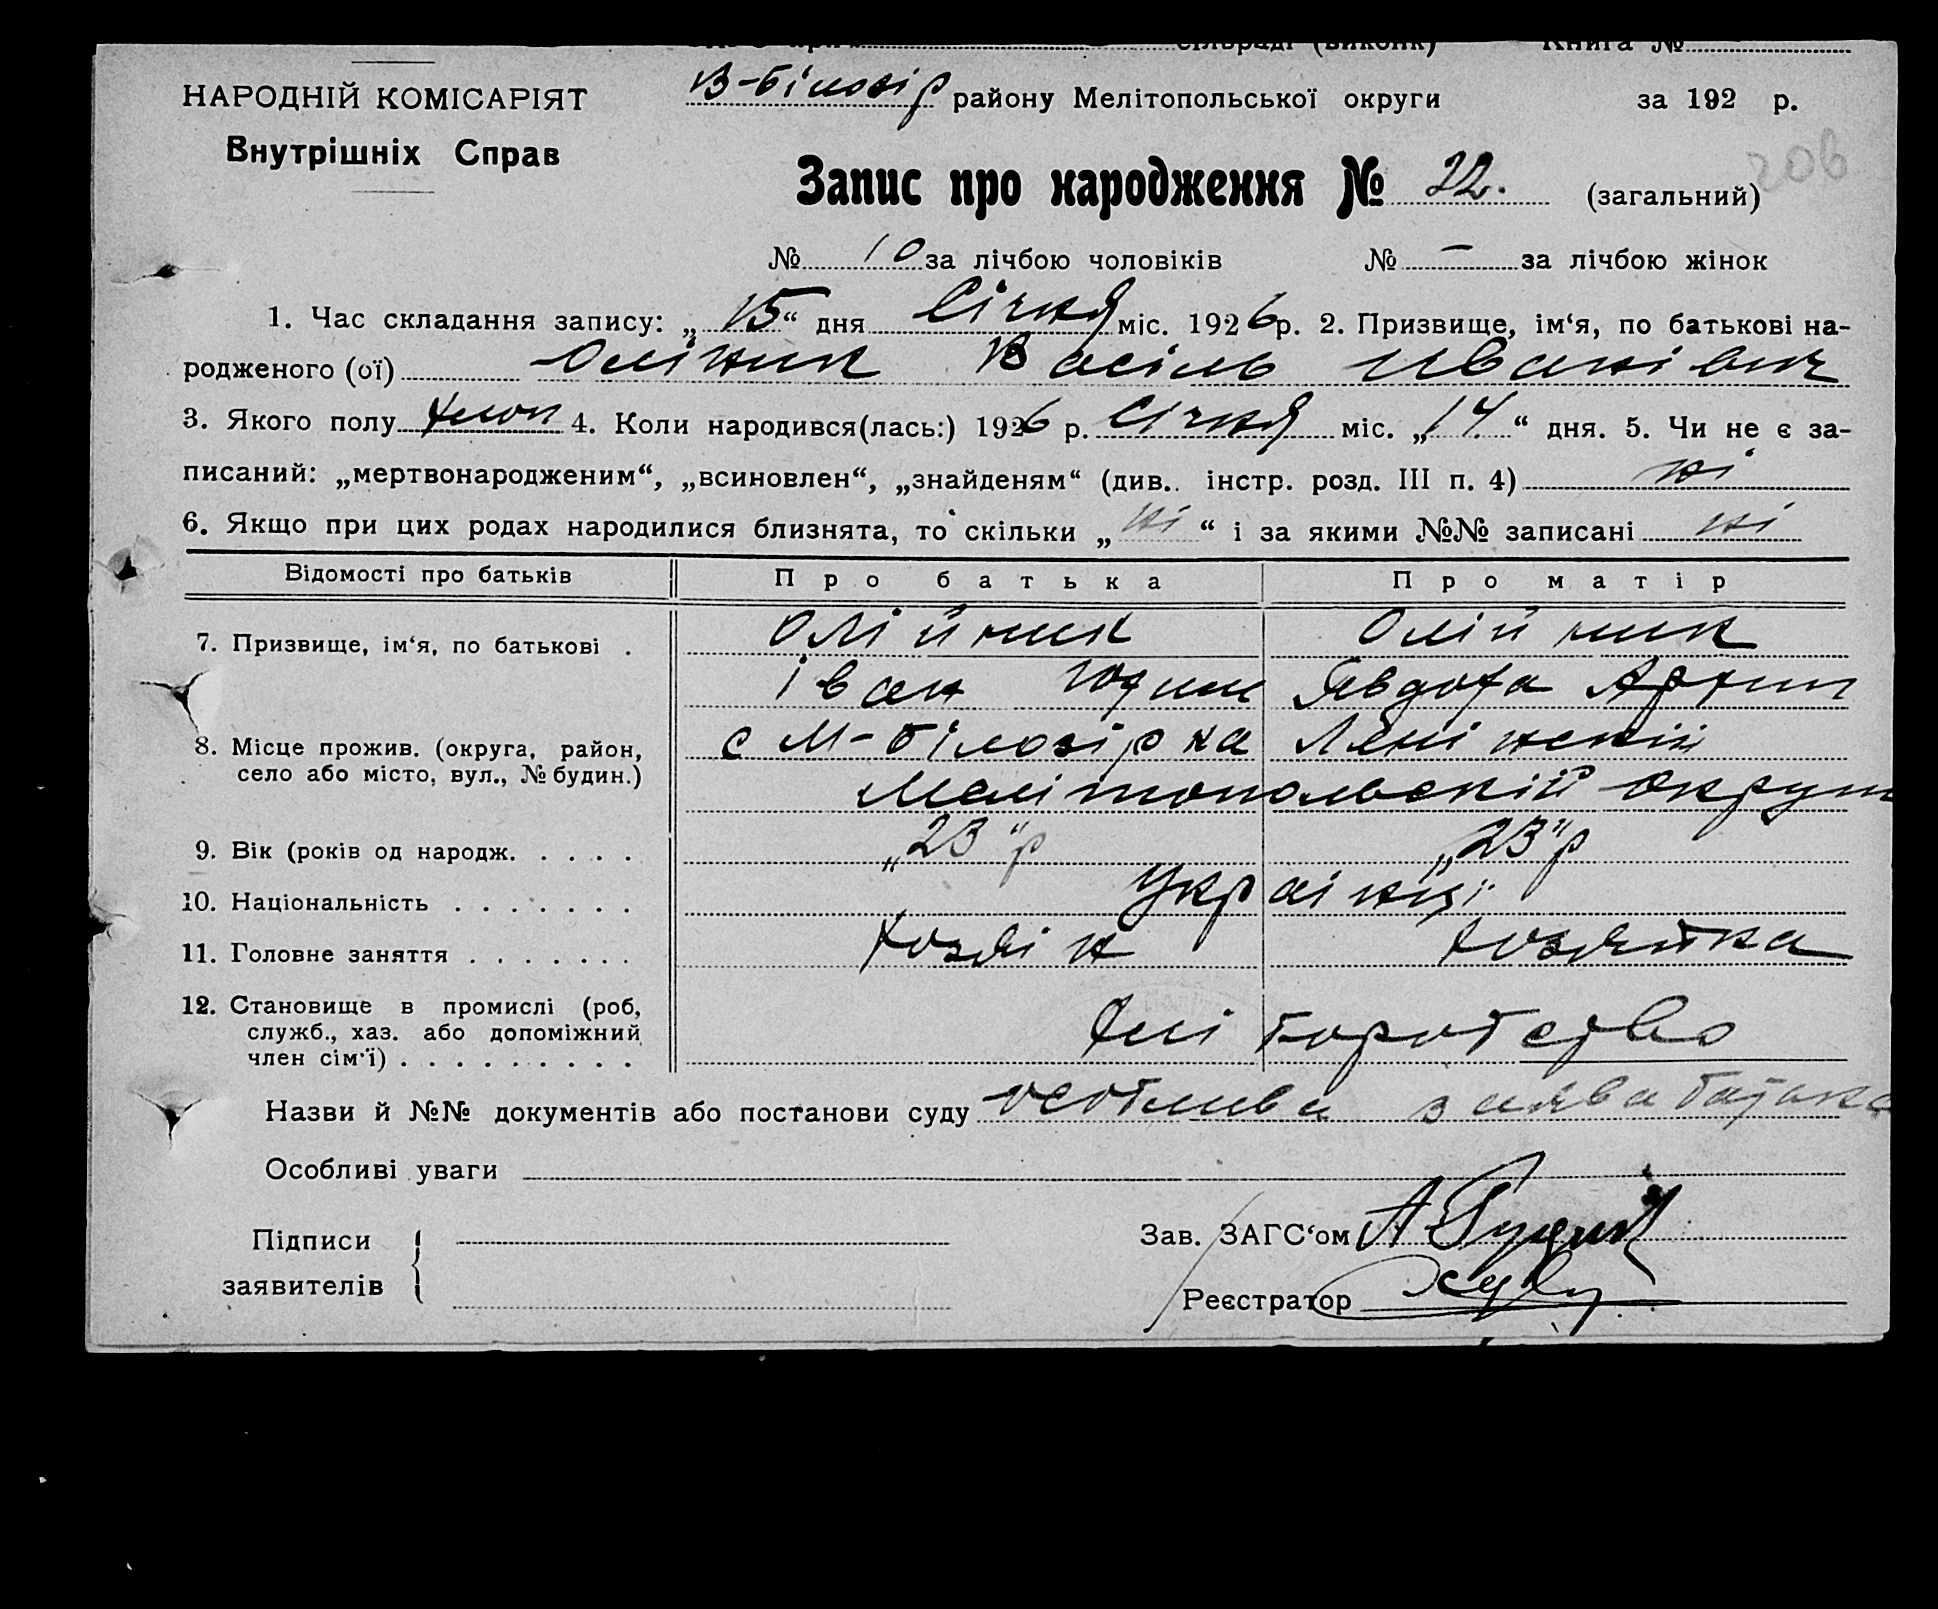 сільраді (виконк) Книга №
НАРОДНІЙ КОМІСАРІЯТ
Внутрішніх Справ
В-Білозір району Мелітопольської округи за 192 р.
Запис про народження № 22. (загальний)
№ 10 за лічбою чоловіків № — за лічбою жінок
1. Час складання запису: „15“ дня Січня міс. 1926 р. 2. Призвище, ім‘я, по батькові на-
родженого (ої) Оліник Васіль Іванівич
3. Якого полу хлоп 4. Коли народився(лась:) 1926 р. Січня міс. „14.“ дня. 5. Чи не є за-
писаний: „мертвонародженим“, „всиновлен“, „знайденям“ (див.. інстр. розд. III п. 4) ні
6. Якщо при цих родах народилися близнята, то скільки „ні“ і за якими №№ записані ні
Відомості про батьків Про батька Про матір
7. Призвище, ім‘я, по батькові . Олійник Олійник
Іван Юдим Явдоха Архип
8. Місце прожив. (округа, район,
село або місто, вул., № будин.)
с М-білозірка
Мелітопольскій округи
9. Вік (років од народж. . . . . „23“р „23“р
10. Національність . . . . . . . Українці
11. Головне заняття . . . . . . . хозяін хозяйка
12. Становище в промислі (роб,
служб., хаз. або допоміжний
член сім‘ї) . . . . . . . . . . хліборобство
Назви й №№ документів або постанови суду особлива заява батька
Особливі уваги
Підписи
заявителів
Зав. ЗАГС‘ом
Реєстратор